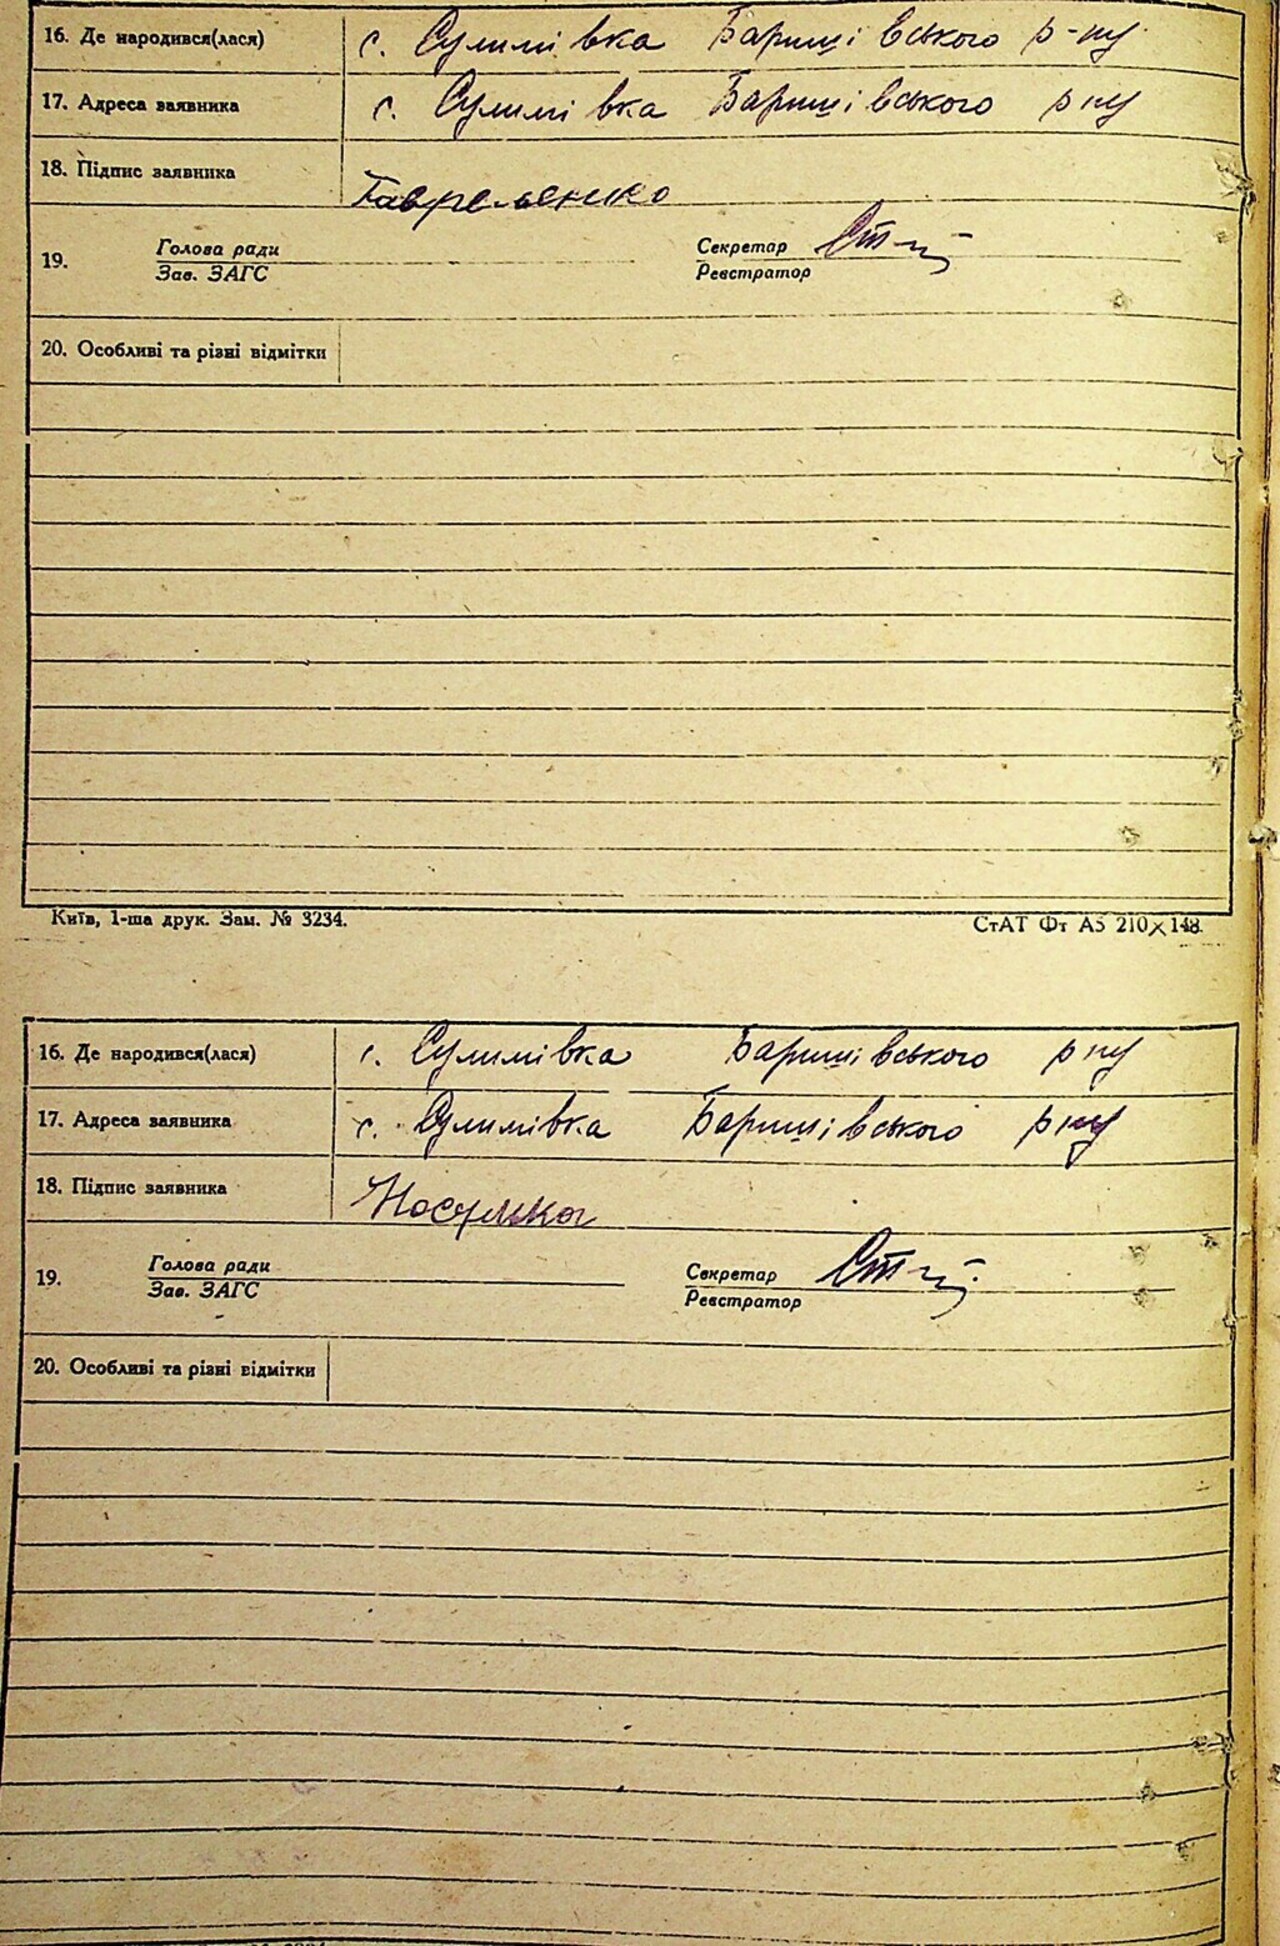 16. Де народився(лася) с. Сулимівка Баришівського р-ну.
17. Адреса заявника с. Сулимівка Баришівського рну
18. Підпис заявника Гаврельенко
19. Голова ради Секретар
Зав. ЗАГС Реєстратор
20. Особливі та різні відмітки
Київ, 1-ша друк. Зам. № 3234. СтАТ Фт А5 210×148.
16. Де народився(лася) с. Сулимівка Баришівського рну
17. Адреса заявника с. Сулимівка Баришівського рну
18. Підпис заявника
19. Голова ради Секретар
Зав. ЗАГС Реєстратор
20. Особливі та різні відмітки